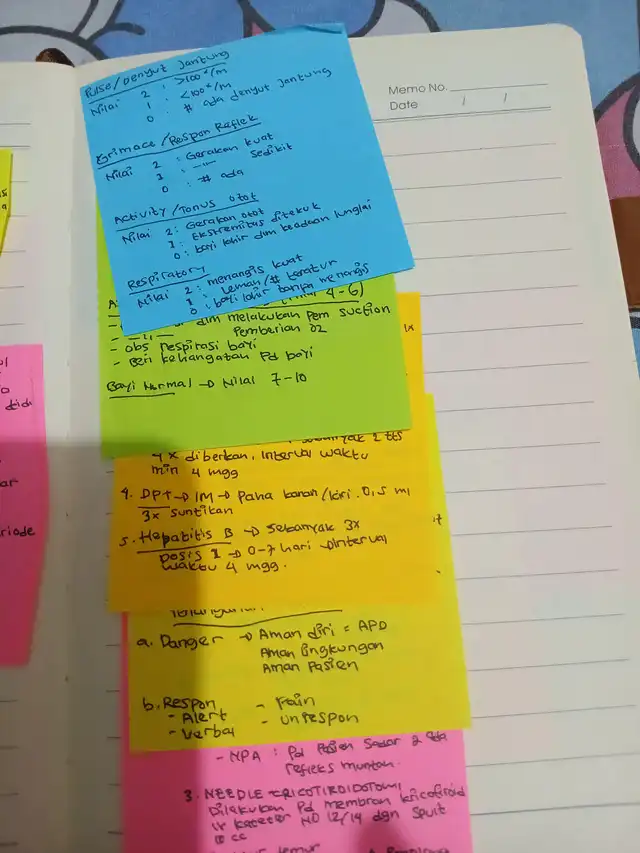 Pulse/Denyut Jantung
Nilai 2 : >100x/m
1 : <100x/m
0 : # ada denyut jantung
Grimace/Respon Reflek
Nilai 2 : Gerakan kuat
1 : —"— sedikit
0 : # ada
Activity/Tonus otot
Nilai 2 : Gerakan otot
1 : Ekstremitas ditekuk
0 : bayi lahir dlm keadaan lunglai
Respiratory
Nilai 2 : menangis kuat
1 : Lemah/# teratur
0 : bayi lahir tanpa menangis
4-6)
dlm melakukan Pem suction
Pemberian O2
- obs respirasi bayi
- Beri kehangatan Pd bayi
Bayi Normal → Nilai 7-10
sebanyak 2 tts
4x diberikan, interval waktu
min 4 mgg
4. DPT → IM → Paha kanan/kiri 0,5 ml
3x suntikan
5. Hepatitis B → sebanyak 3x
Dosis 1 → 0-7 hari → interval
waktu 4 mgg.
a. Danger → Aman diri = APD
Aman lingkungan
Aman Pasien
b. Respon - Pain
- Alert - Unrespon
- Verbal
- NPA : Pd Pasien Sadar & ada
refleks muntah.
3. NEEDLE CRICOTIROIDOTOMI
Dilakukan Pd membran kricotiroid
kateter NO 12/14 dgn Spuit
10 cc
Memo No.
Date / /
riode